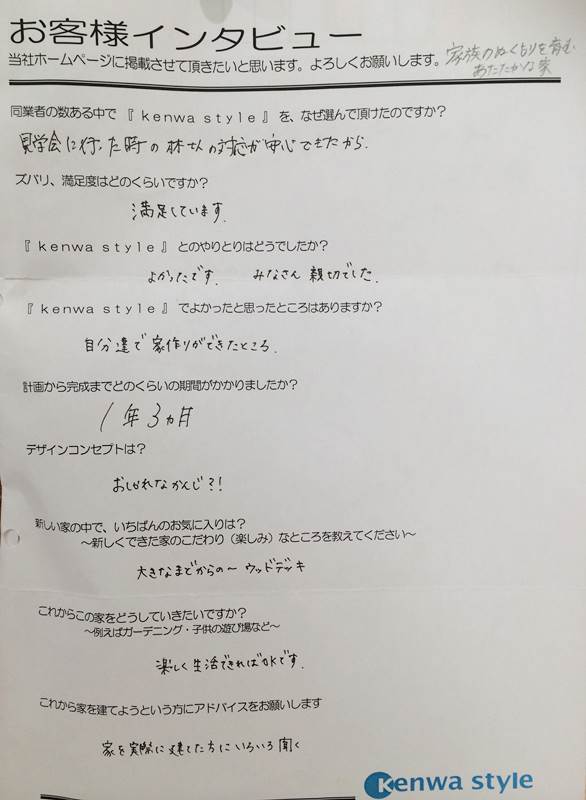 お客様インタビュー
当社ホームページに掲載させて頂きたいと思います。よろしくお願いします。
家族のぬくもりを育む
あたたかな家
同業者の数ある中で『kenwa style』を、なぜ選んで頂けたのですか？
見学会に行った時の林さんの対応が安心できたから.
ズバリ、満足度はどのくらいですか？
満足しています.
『kenwa style』とのやりとりはどうでしたか？
よかったです. みなさん親切でした.
『kenwa style』でよかったと思ったところはありますか？
自分達で家作りができたところ.
計画から完成までどのくらいの期間がかかりましたか？
1年3ヵ月
デザインコンセプトは？
おしゃれなかんじ?!
新しい家の中で、いちばんのお気に入りは？
～新しくできた家のこだわり（楽しみ）なところを教えてください～
大きなまどからの～ ウッドデッキ
これからこの家をどうしていきたいですか？
～例えばガーデニング・子供の遊び場など～
楽しく生活できればOKです.
これから家を建てようという方にアドバイスをお願いします
家を実際に建てた方にいろいろ聞く
kenwa style